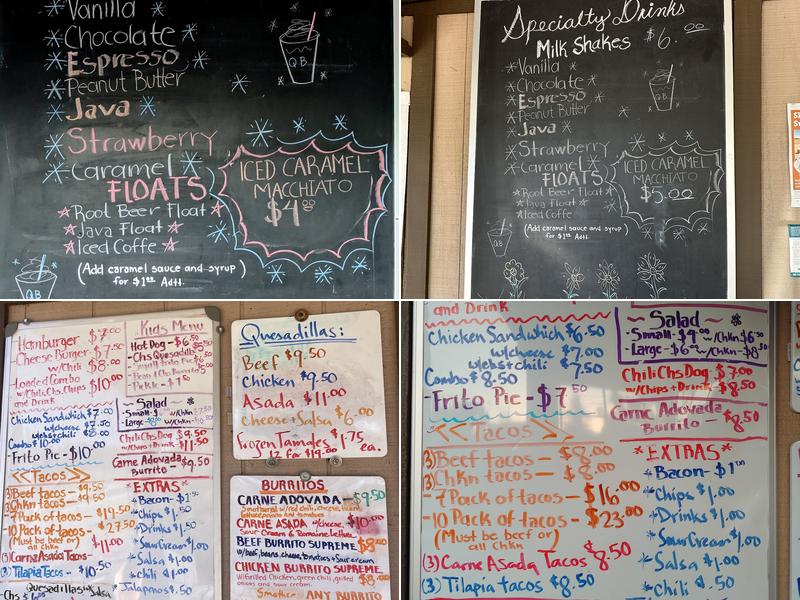 Vanilla
Chocolate
Espresso
Peanut Butter
Java
Strawberry
Caramel
FLOATS
Root Beer Float
Java Float
Iced Coffe
(Add caramel sauce and syrup)
for $1.00 Addt.
QB
QB
ICED CARAMEL
MACCHIATO
$4.00
Specialty Drinks
Milk Shakes $6.00
Vanilla
Chocolate
Espresso
Peanut Butter
Java
Strawberry
Caramel
FLOATS
Root Beer Float
Java Float
Iced Coffe
(Add caramel sauce and syrup
for $1.00 Addt.
ICED CARAMEL
MACCHIATO
$5.00
Hamburger $7.00
Cheese Burger $7.50
w/Chili $8.00
Loaded Combo
w/Chili, Chs, Chips $10.00
and Drink
Chicken Sandwhich $7.00
w/cheese $7.50
w/chs+chili
Combo
Frito Pie - $10.00
<<Tacos>>
(3) Beef tacos - $9.50
(3) Chkn tacos - $9.50
7 Pack of tacos - $19.50
10 Pack of tacos - $27.50
(Must be beef or
all Chkn
(3) Carne Asada Tacos - $11.00
(3) Tilapia Tacos - $10.50
Kids Menu
Hot Dog - $6.50
Chs Quesadilla
Salad
Small
Large
Chili Chs Dog $9.50
w/Chips+Drink $11.50
Carne Adovada
Burrito - $9.50
*EXTRAS*
Bacon - $1.50
Chips $1.00
Drinks $1.50
Sour Cream $1.00
Salsa $1.00
Chili $1.00
Jalapenos $.50
Quesadillas w/Salsa
Quesadillas:
Beef $9.50
Chicken $9.50
Asada $11.00
Cheese+Salsa $6.00
Frozen Tamales $1.75
12 for $19.00 ea.
BURRITOS
CARNE ADOVADA - $9.50
Smothered w/red chili, cheese, beans,
lettuce, onions and tomatoes
CARNE ASADA w/cheese, $10.00
Sour Cream & Romaine Lettuce
BEEF BURRITO SUPREME
w/beef, beans, cheese, tomatoes+Sour cream
CHICKEN BURRITO SUPREME
w/Grilled Chicken, green chili, grilled
onions and sour cream.
Smother ANY BURRITO
and Drink
Chicken Sandwhich $6.50
w/cheese $7.00
w/chs+chili $7.50
Combo $8.50
Frito Pie - $7.50
<<Tacos>>
(3) Beef tacos - $8.00
(3) Chkn tacos - $8.00
7 Pack of tacos - $16.00
10 Pack of tacos - $23.00
(Must be beef or)
all Chkn
(3) Carne Asada Tacos $8.50
(3) Tilapia tacos $8.50
Salad
Small - $4.00 w/Chkn $6.50
Large - $6.00 w/Chkn - $8.50
Chili Chs Dog $7.00
w/Chips+Drink - $8.50
Carne Adovada
Burrito - $8.50
*EXTRAS*
Bacon - $1.00
Chips $1.00
Drinks $1.00
Sour Cream $1.00
Salsa $1.00
Chili $.50